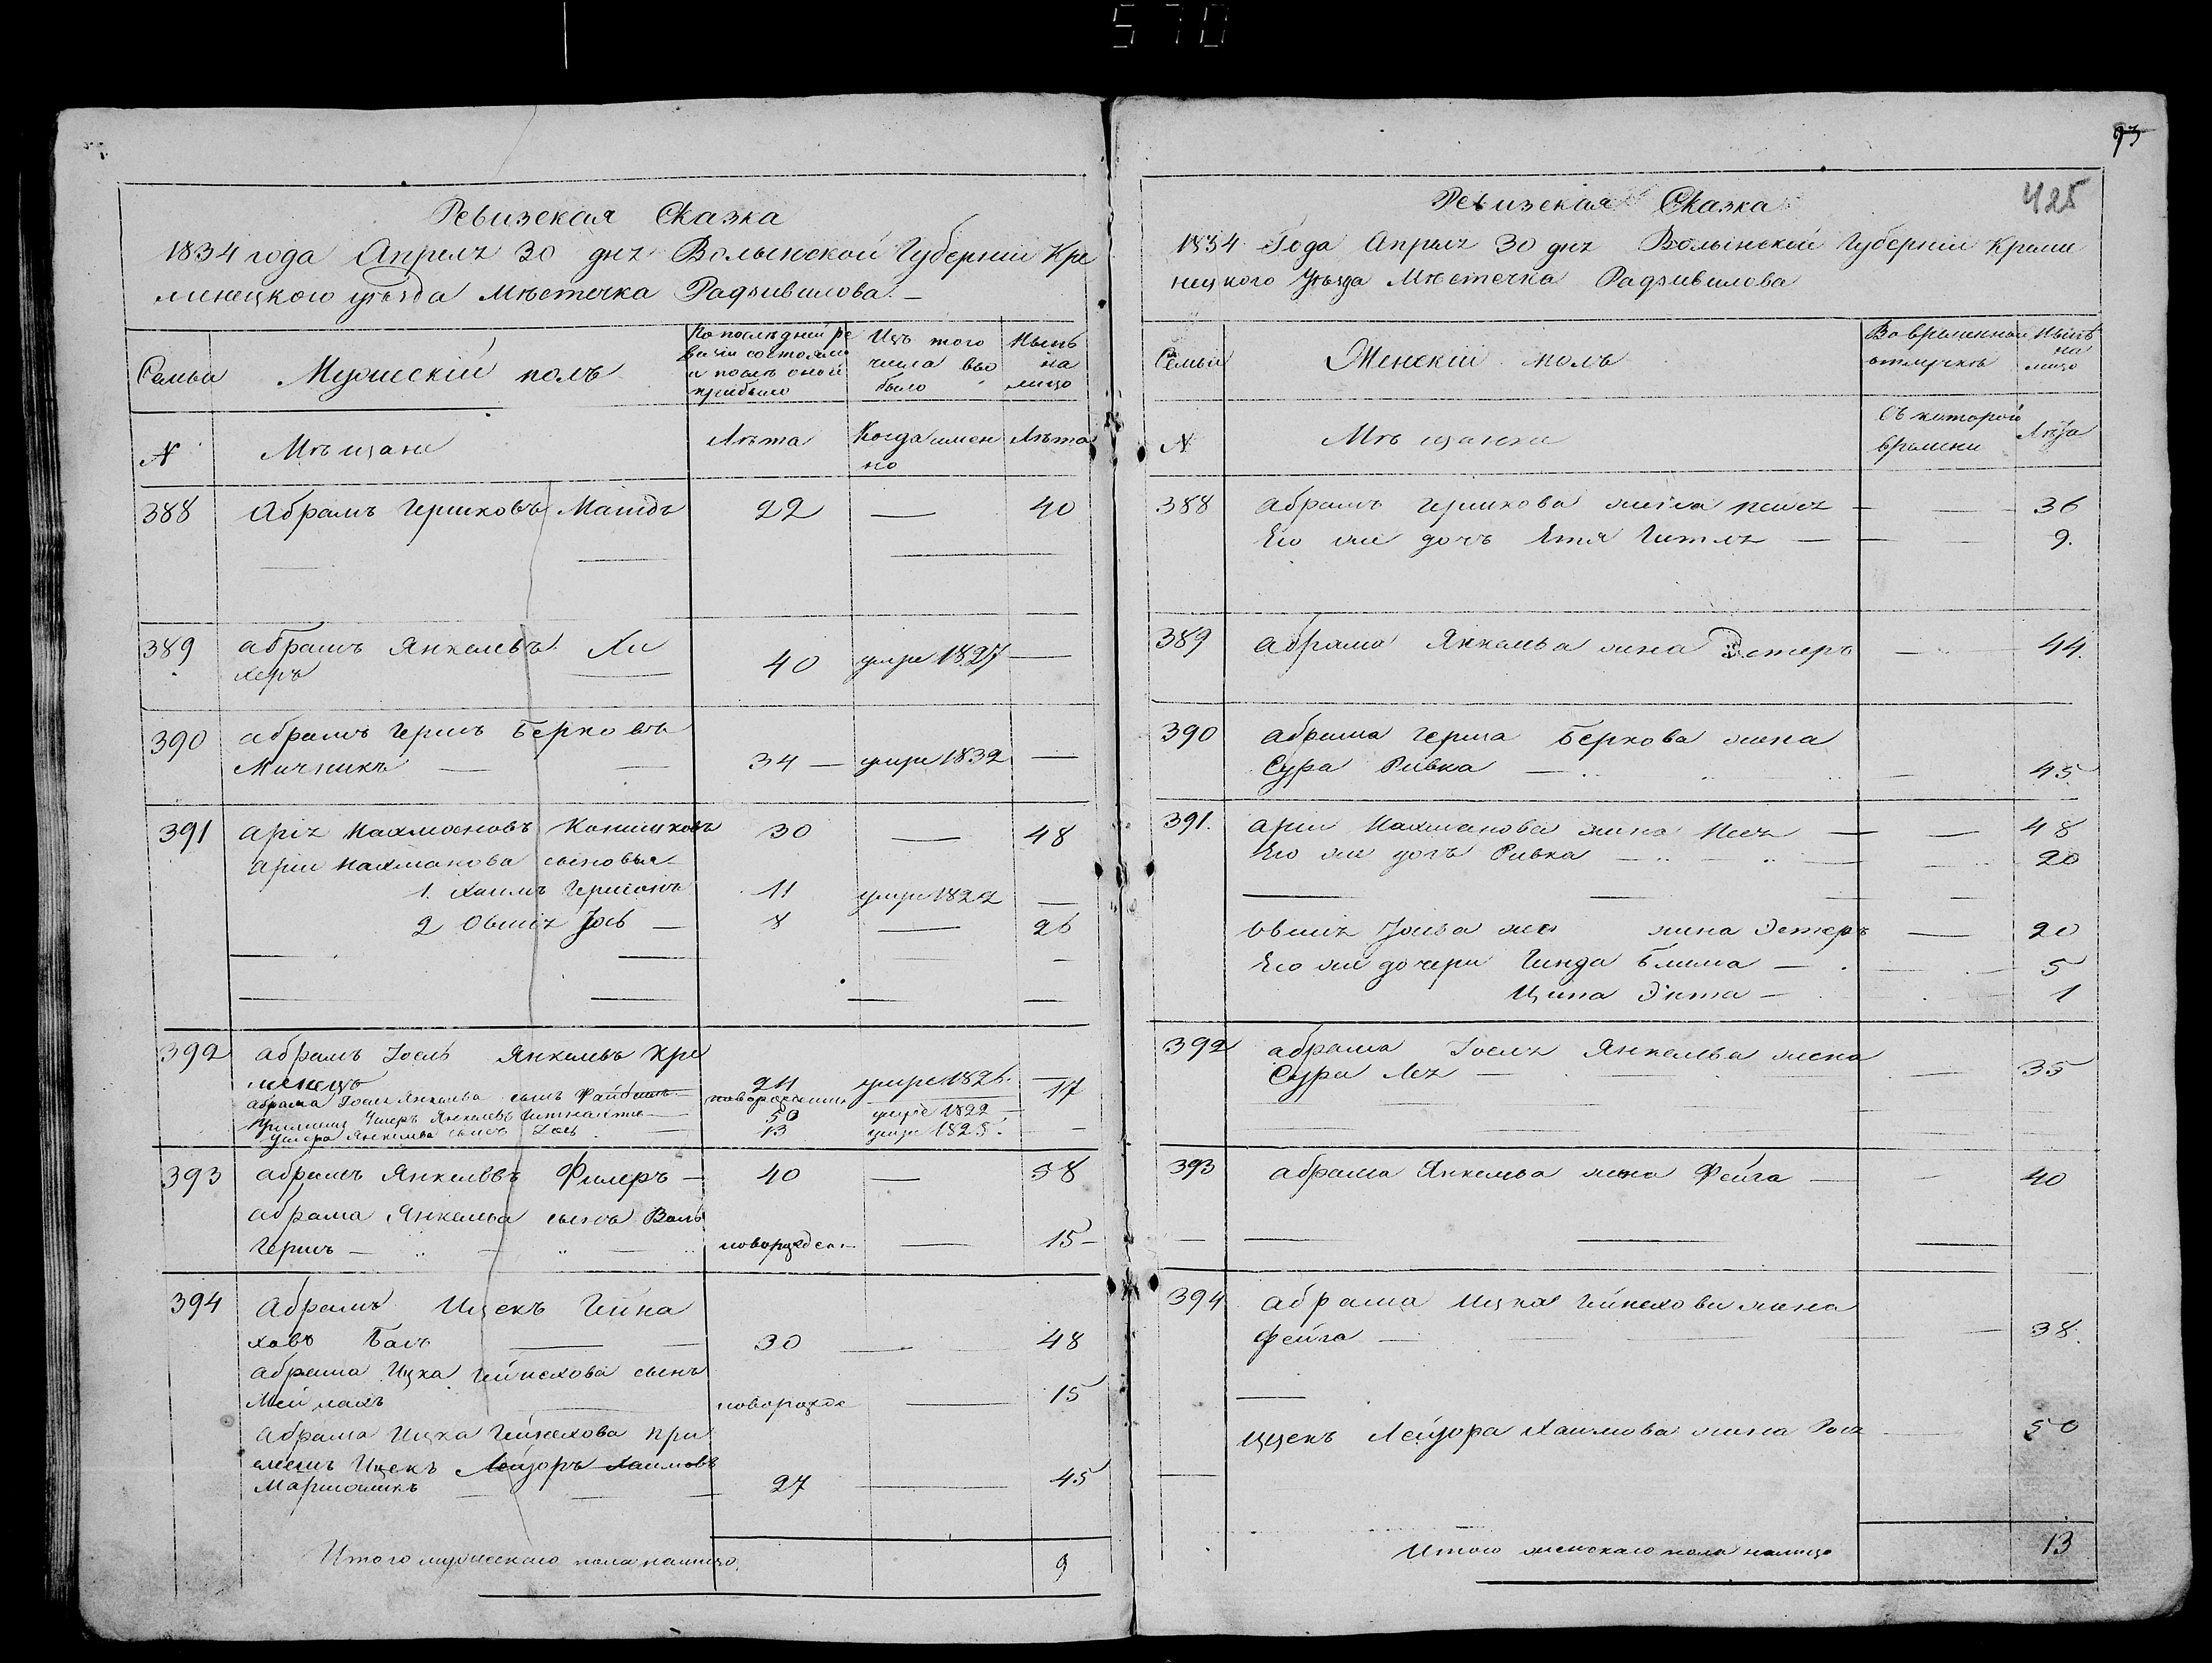 570
Ревизская Сказка
1834 года Апреля 30 дня Волынской Губернии Кре
менецкого уѣзда Мѣстечка Радзивилова
Семьи
Мужескій полъ
По последней ре
визіи состояло
и послѣ оной
прибыло
Изъ того
числа вы
было
Нынѣ
на
лицо
N
Мѣщане
Лѣта
Когда имен
но
Лѣта
388 Абрамъ Гершковъ 22 — 40
389 Абрамъ Янкелевъ Хи 40 умре 1827 —
херъ
390 Абрамъ Гершъ Берковъ
Мичникъ — 34 — умре 1832 —
391 Арія Нахмановъ 30 — 48
Арія Нахманова сыновья
1. Хаимъ Гершонъ 11 умре 1822 —
2 Овшія Іось — 8 — 26
392 Абрамъ Іосель Янкелевъ Кре
менецъ 24 умре 1826. —
Абрама Іоселя Янкелева сынъ Файбишъ новорожденны 17
Янкелевъ 50 умре 1822 —
Ушера Янкелева сынъ Іось 13 умре 1825. —
393 Абрамъ Янкелевъ Филеръ — 40 — 58
Абрама Янкелева сынъ Воль
Гершъ — новорожден — 15 —
394 Абрамъ Ицекъ Гейна
ховъ Балъ 30 48
Абрама Ицка Гейнехова сынъ
Меймахъ новорожде — 15
Абрама Ицка Гейнехова при
емышъ Ицекъ Лейзоръ Хаимовъ
27 — 45
Итого мужескаго пола налицо, 9
93
425
Ревизская Сказка
1834 Года Апреля 30 дня Волынской Губерніи Креме
нецкого Уѣзда Мѣстечка Радзивилова
Семьи
Женскій полъ
Во временной
отлучкѣ
Нынѣ
на
лицо
N
Мѣщанки
Съ которого
времени
Лѣта
388 Абрамъ Гершкова жена — — 36
Его же дочь Етя Гитля — — 9.
389 Абрама Янкелева жена Эстеръ — 44.
390 Абрама Герша Беркова жена
Сура Ривка — — 45
391. Арии Нахманова жена Неся — — 48
Его же дочь Ривка — — 20
Овшія Іосева жена Эстеръ — 20
Его же дочери Гинда Блима — — 5
Ципа Энта — 1
392 Абрама Іоселя Янкелева жена
Сура Лея — — 35
393 Абрама Янкелева жена Фейга — — 40
394 Абрама Ицка Гейнехова жена
Фейга — — 38.
Ицекъ Лейзора Хаимова жена 50
Итого женскаго пола налицо 13